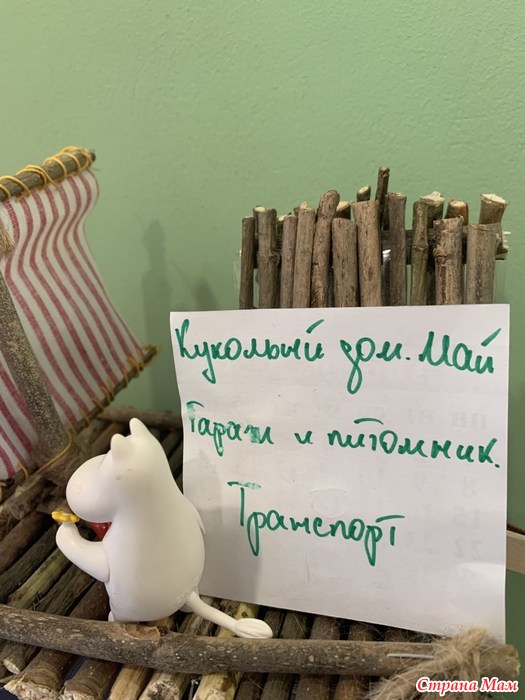 Кукольный дом. Май
Гараж и питомник.
Транспорт
Страна Мам